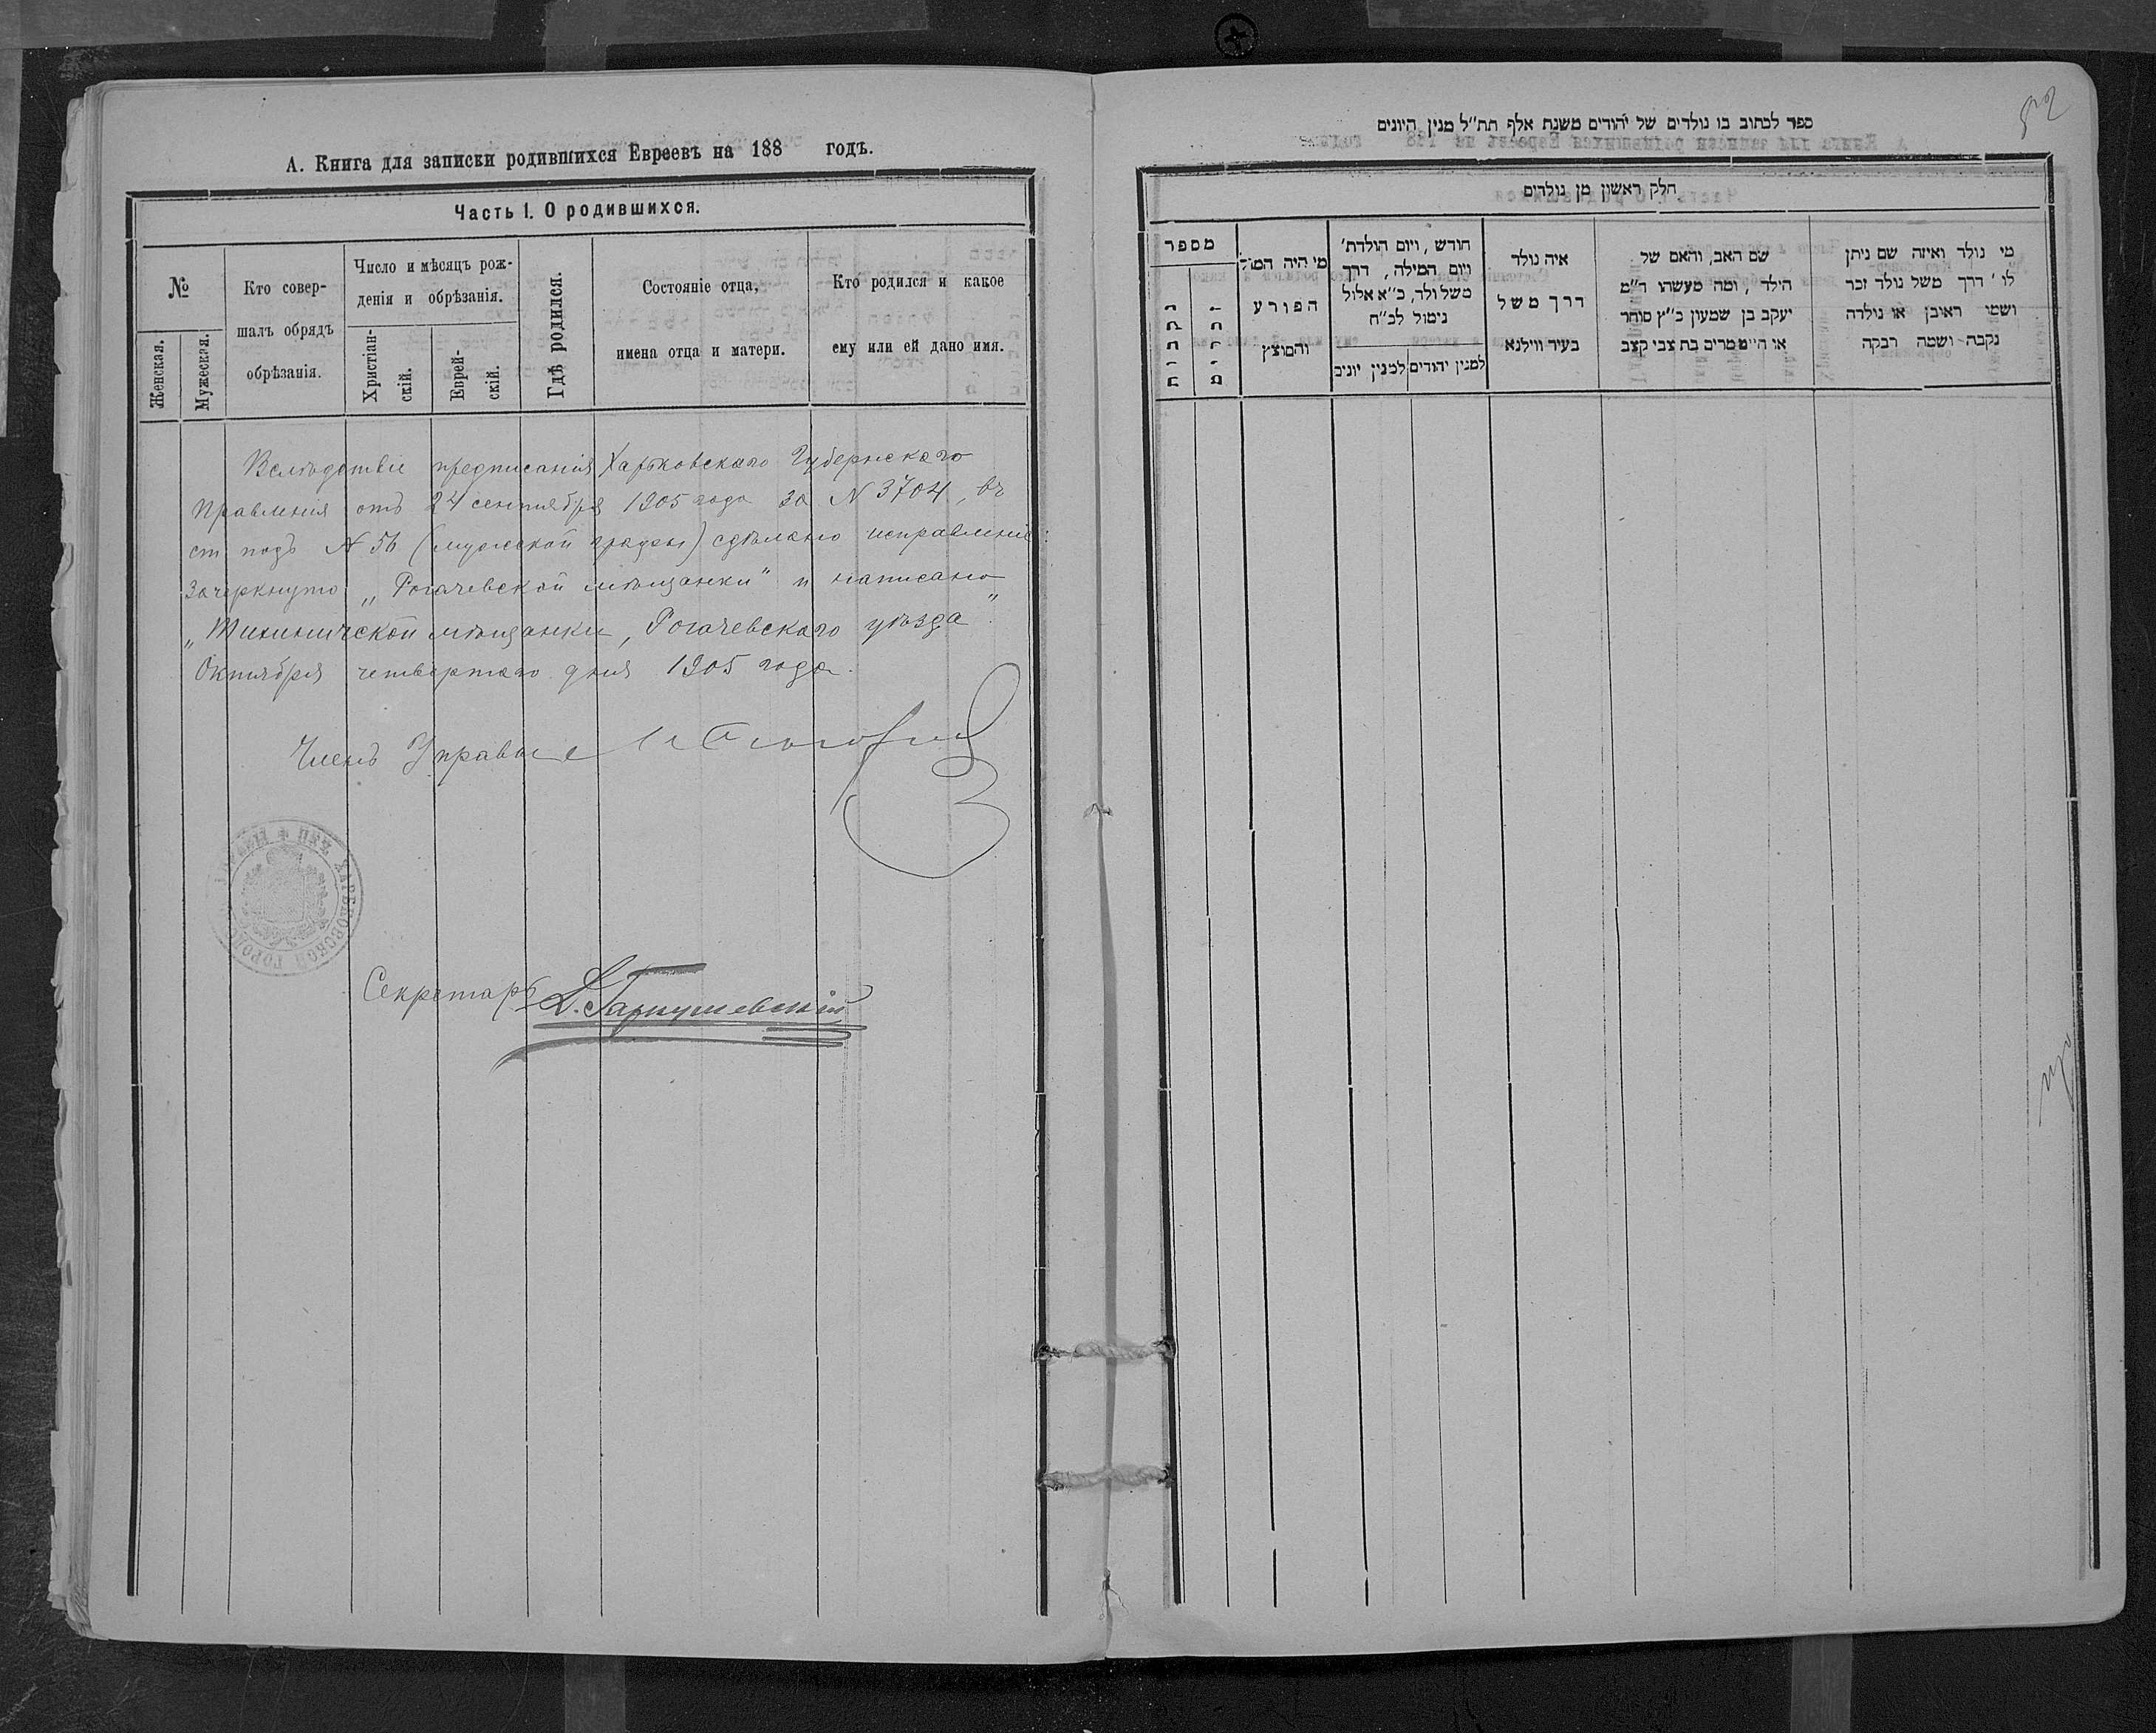 А. Книга для записки родившихся Евреевъ на 188 годъ.
Часть I. О родившихся.
№
Женская.
Мужеская.
Кто совер-
шалъ обрядъ
обрѣзанія.
Число и мѣсяцъ рож-
денія и обрѣзанія.
Христіан-
скій.
Еврей-
скій.
Гдѣ родился.
Состояніе отца,
имена отца и матери.
Кто родился и какое
ему или ей дано имя.
Вслѣдствіе предписанія Харьковскаго Губернскаго
Правленія отъ 24 сентября 1905 года за N 3704, въ
ст подъ N 56 (мужеской графы) сдѣлано исправленіе:
Зачеркнуто „Рогачевской мѣщанки" и написано
„Тихиничской мѣщанки, Рогачевскаго уѣзда".
Октября четвертаго дня 1905 года.
Членъ Управы
Секретарь
ХАРЬКОВСКОЙ ГОРОДС
ספר לכתוב בו נולדים של יהודים משנת אלף תת״ל מנין היונים
חלק ראשון מן נולדים
מספר
נקבות
זכרים
מי היה המול
הפורע
והמוצץ
חודש, ויום הולדת׳
ויום המילה, דרך
משל ולד, כ״א אלול
נימול לכ״ח
למנין יהודים
למנין יונים
איה נולד
דרך משל
בעיר ווילנא
שם האב, והאם של
הילד, ומה מעשהו ד״מ
יעקב בן שמעון כ״ץ סוחר
או היים מרים בת צבי קצב
מי נולד ואיזה שם ניתן
לו׳ דרך משל נולד זכר
ושמו ראובן או נולדה
נקבה ושמה רבקה
52